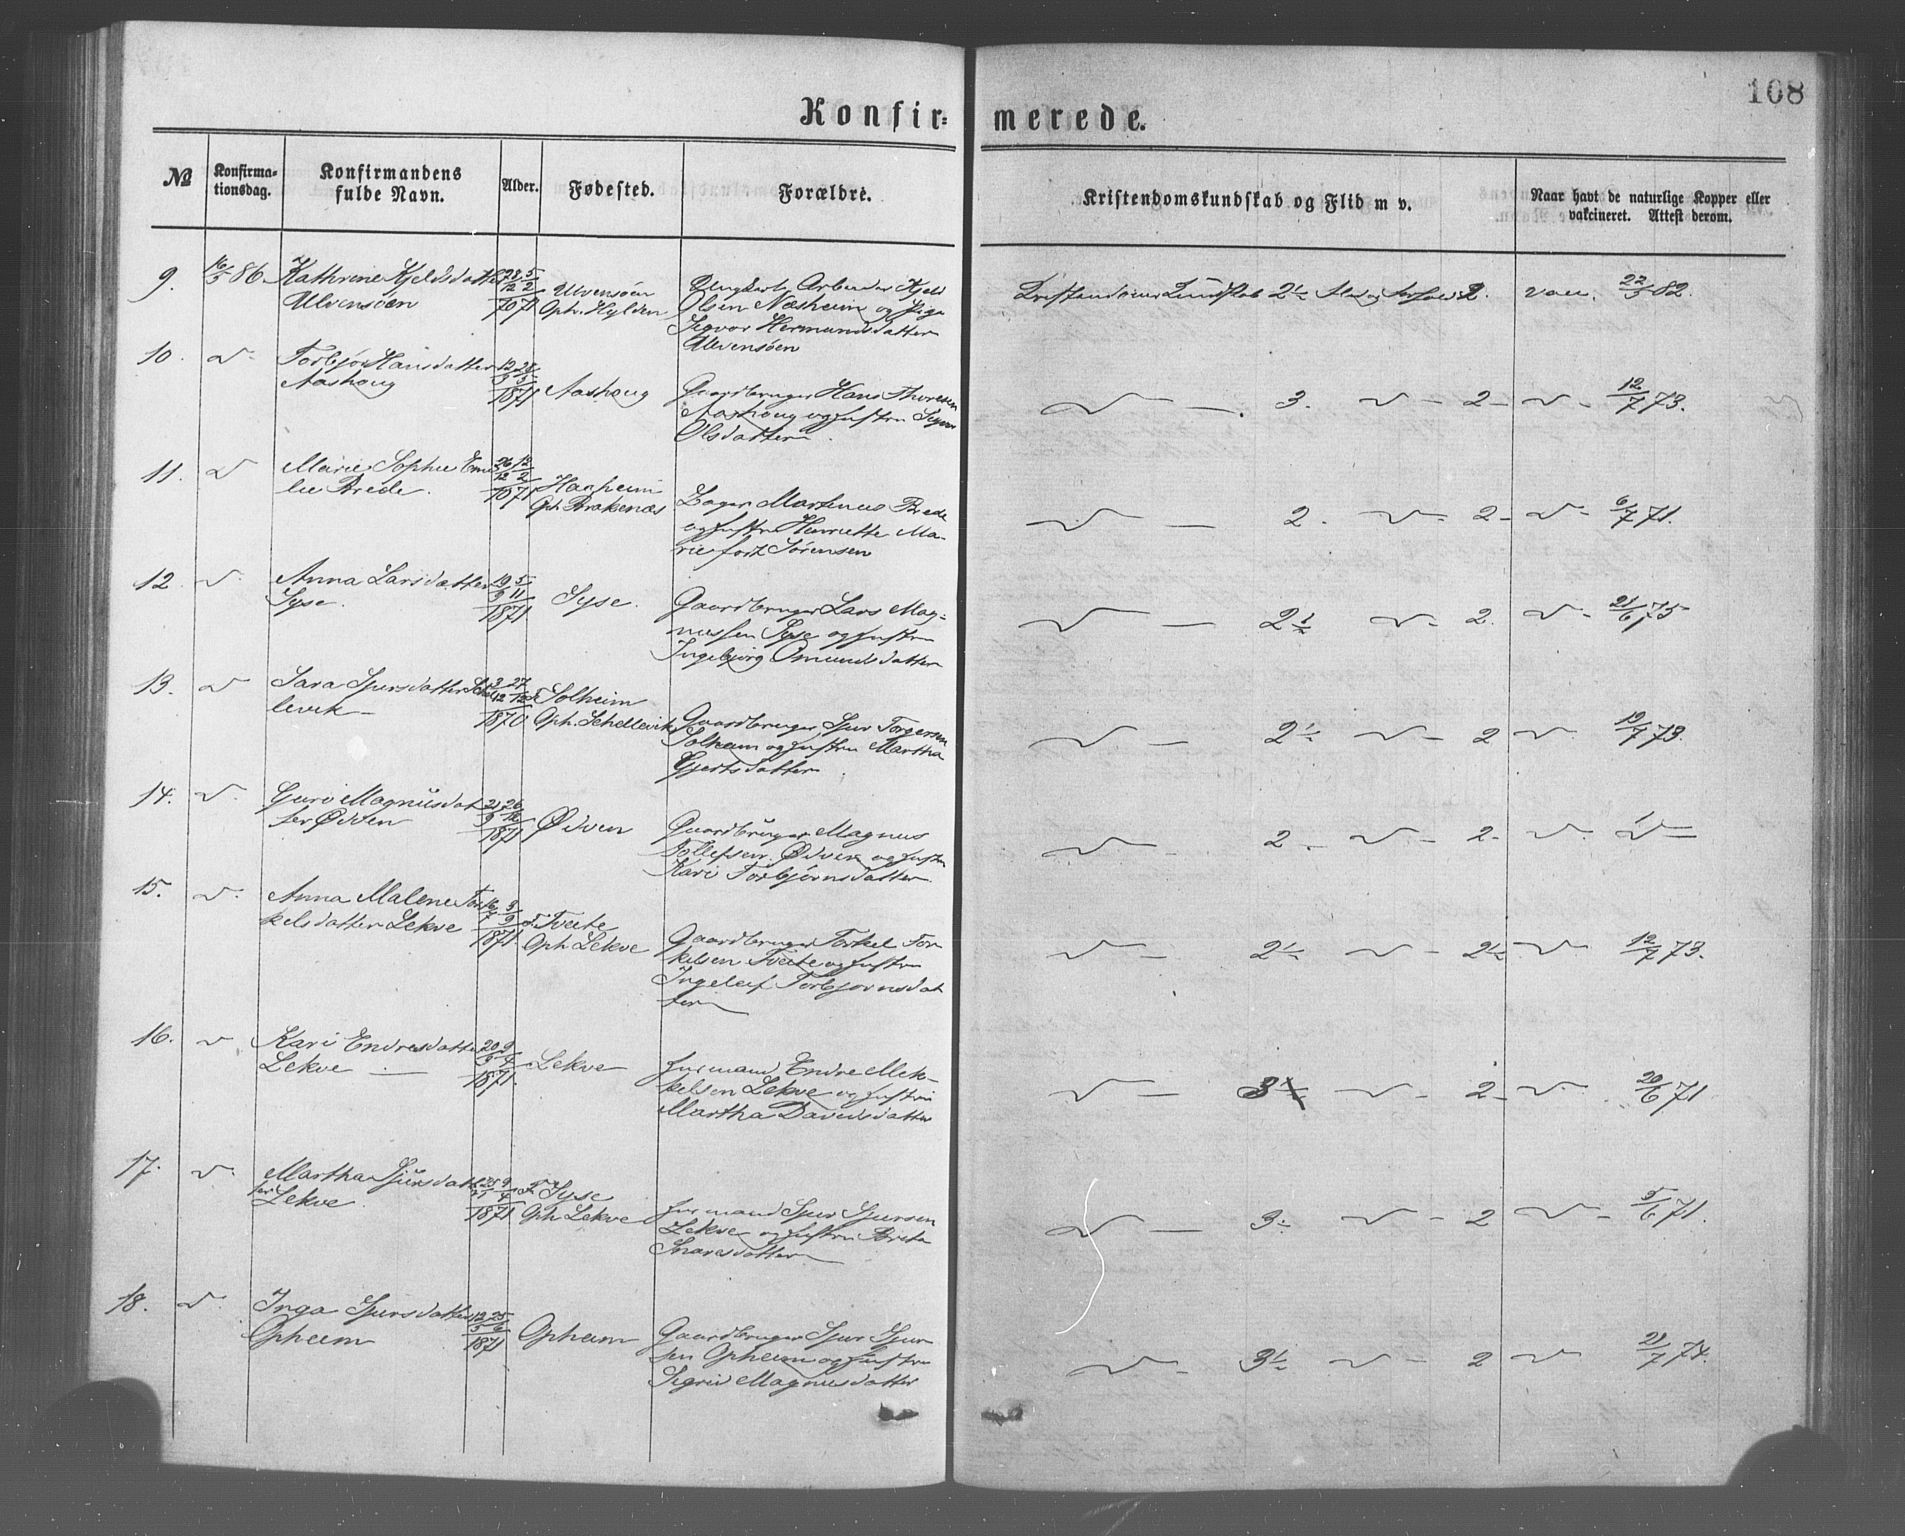 108
Konfir=
merede.
№
Konfirma=
tionsdag.
Konfirmandens
fulde Navn.
Alder.
Fødested.
Forældre.
Kristendomskundskab og Flid m v.
Naar havt de naturlige Kopper eller
vakcineret. Attest derom.
9. 16/5 86.
Kathrine Kjeldsdatter
Ulvensøen
Ulvensøen
Oph. Hylden
Ungkarl Arbeider Kjeld
Olsen Næsheim og Pige
Sigvor Hermundsdatter
Ulvensøen
Kristendomskundskab 2½ 2. vac. 22/5 82.
10.
Torbjør Hansdatter
Aashoug
1871
Aashoug
Gaardbruger Hans Thoresen
Aashoug og Hustru
Olsdatter
3. 2 12/7 73.
11.
Marie Sophie Emi
lie Brede.
Haaheim
Oph. Brakenæs
Martinus Brede
og Hustru Henriette Ma-
rie født Sørensen
2. 2 6/7 71.
12.
Anna Larsdatter
Syse.
19/9 5/11
1871
Syse.
Gaardbruger Lars Mag-
nussen Syse og Hustru
Ingebjørg Omundsdatter
2½ 2. 21/6 75
13.
Sara Sjursdatter Schel
levik
3/12 27/12
1870
Solheim
Oph. Schellevik
Gaardbruger Sjur Torgersen
Solheim og Hustru Martha
Gjertsdatter
2½ 2 12/7 73.
14.
Guro Magnusdat
ter Ødven
1871
Ødven
Gaardbruger Magnus
Tollefsen Ødven og Hustru
Kari Torbjørnsdatter
2 2
15.
Anna Malene Tor
kelsdatter Lekve
1871
Tveite
Oph. Lekve
Gaardbruger Torkel Tor
kelsen Tveite og Hustru
Ingeleif Torbjørnsdat
ter
2½ 2½ 12/7 73.
16.
Kari Endresdatter
Lekve
20/9 9/4
1871.
Lekve
Huusmand Endre Mik-
kelsen Lekve og Hustru
Martha Davidsdatter
3 2 20/6 71
17.
Martha Sjursdat
ter Lekve
1871
Syse
Oph. Lekve
Huusmand Sjur Sjursen
Lekve og Hustru Brita
Ivarsdatter
3 2 5/6 71.
18.
Inga Sjursdatter
Opheim
12/5 25/6
1871
Opheim
Gaardbruger Sjur Sjur
sen Opheim og Hustru
Sigrid Magnusdatter
3½ 2 21/7 74.